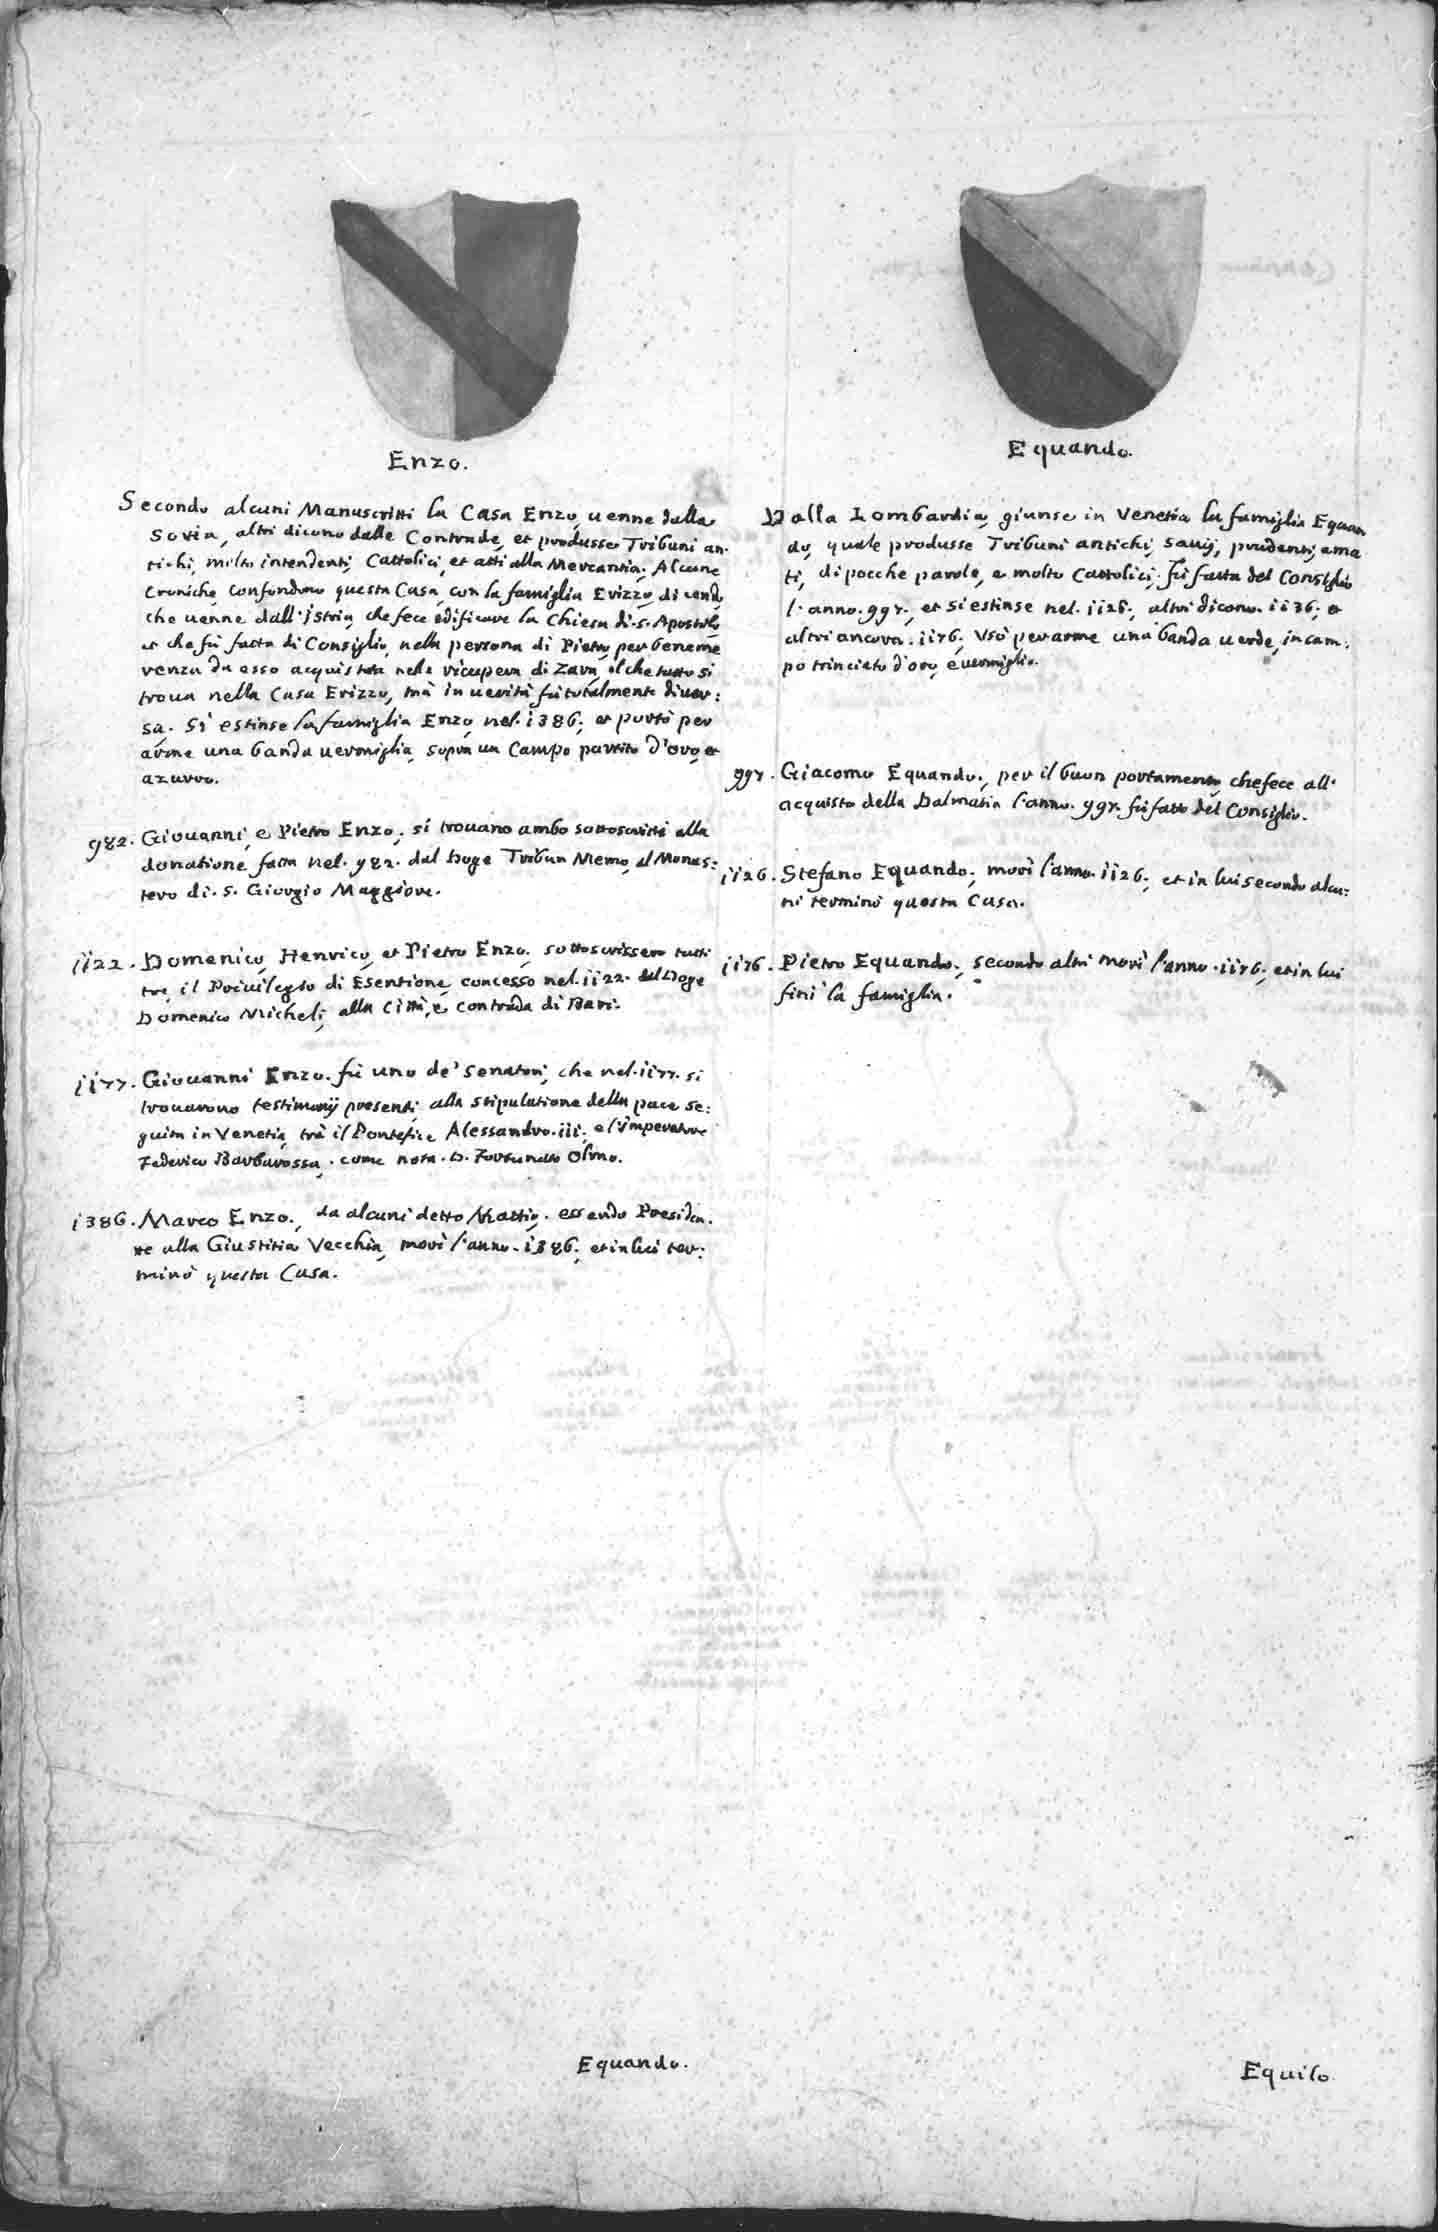 Enzo.
Secondo alcuni Manuscritti la Casa Enzo, uenne dalla
Soria, altri dicono dalle Contrade, et produsse Tribuni an-
tichi, molto intendenti, Cattolici, et atti alla Mercantia. Alcune
Croniche confondono questa Casa, con la famiglia Erizzo, dicendo
che uenne dall'Istria, che fece edificare la Chiesa di .S. Apostolo
et che fù fatta di Consiglio, nella persona di Pietro, per beneme
renza da esso acquistata nella ricupera di Zara, il che tutto si
troua nella Casa Erizzo, mà in uerità fù totalmente diuer:
sa. Si estinse la famiglia Enzo, nel .1386. et portò per
arme una banda uermiglia, sopra un Campo partito d'oro, et
azurro.
982. Giouanni, e Pietro Enzo, si trouano ambo sottoscritti alla
donatione fatta nel .982. dal Doge Tribun Memo, al Monas:
tero di .S. Giorgio Maggiore.
1122. Domenico, Henrico, et Pietro Enzo, sottoscrissero tutti
tre, il Priuilegio di Esentione, concesso nel .1122. dal Doge
Domenico Micheli, alla Città, e contrada di Bari.
1177. Giouanni Enzo. fù uno de' Senatori, che nel .1177. si
trouarono testimonij presenti, alla stipulatione della pace se:
guita in Venetia, trà il Pontefice Alessandro .iii., e l'imperatore
Federico Barbarossa, come nota .D. Fortunato Olmo.
1386. Marco Enzo., da alcuni detto Mattio. essendo Presiden.
te alla Giustitia Vecchia, morì l'anno .1386., et in lui ter:
minò questa Casa.
Equando.
Equando.
Dalla Lombardia, giunse in Venetia la famiglia Equan
do, quale produsse Tribuni antichi, sauij, prudenti, ama
ti, di pocche parole, e molto Cattolici. fù fatta del Consiglio
l'anno .997., et si estinse nel .1126., altri dicono .1136. et
altri ancora .1176. Usò per arme una banda uerde, in cam:
po trinciato d'oro, e uermiglio.
997. Giacomo Equando., per il buon portamento, che fece all'
acquisto della Dalmatia l'anno .997. fù fatto del Consiglio.
1126. Stefano Equando., morì l'anno .1126., et in lui secondo alcu:
ni terminò questa Casa.
1176. Pietro Equando., secondo altri morì l'anno .1176., et in lui
finì la famiglia.
Equilo.